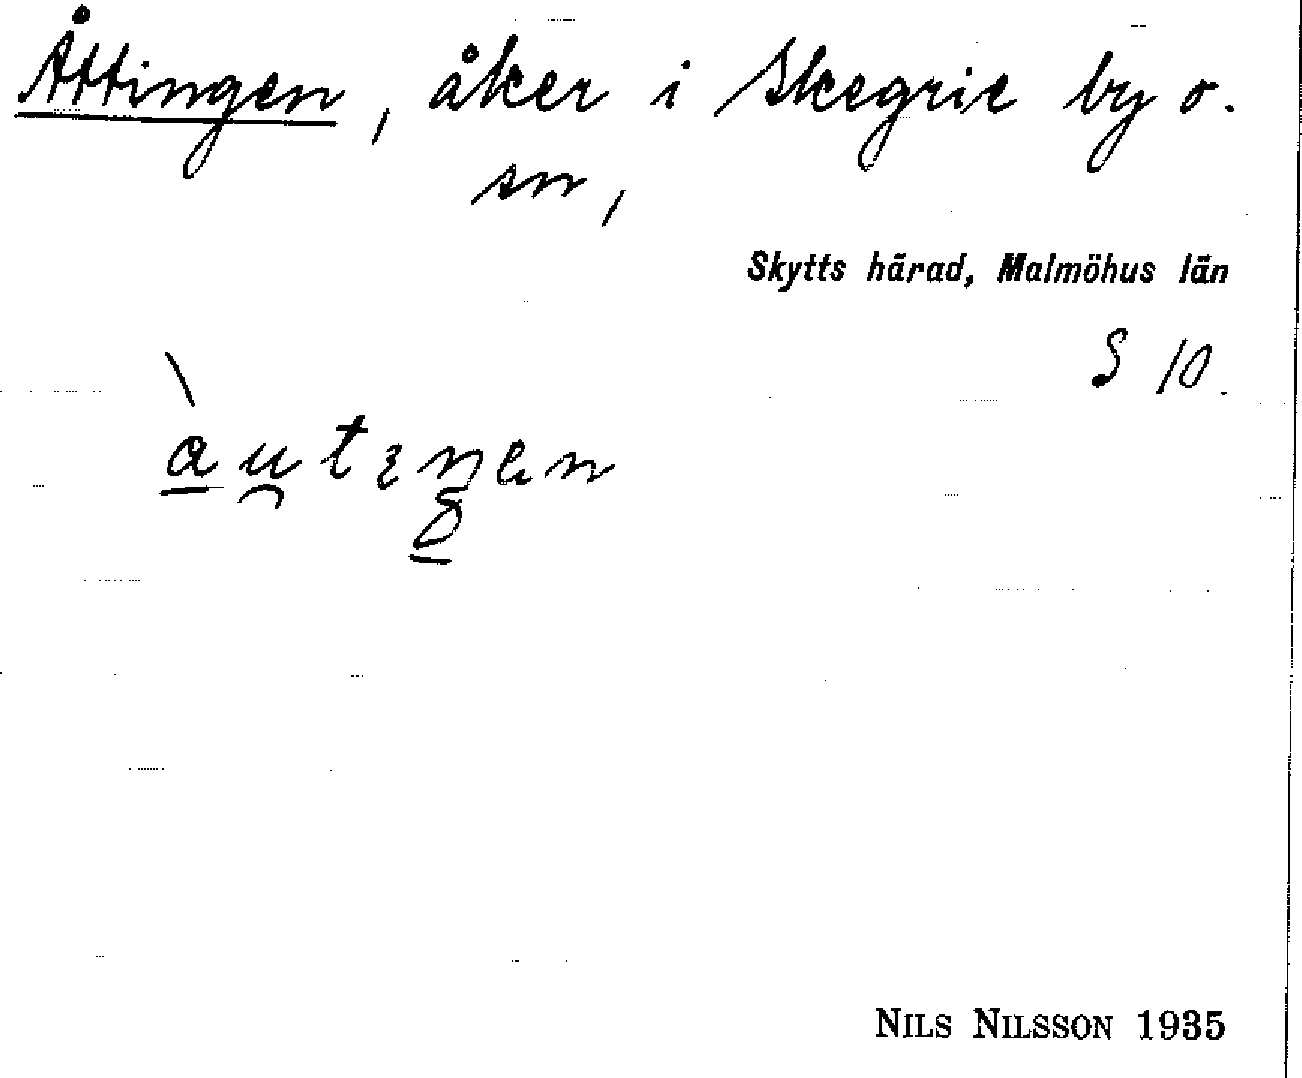 Åttingen, åker i Skegrie by o.
sn,
Skytts härad, Malmöhus län
S 10.
NILS NILSSON 1935